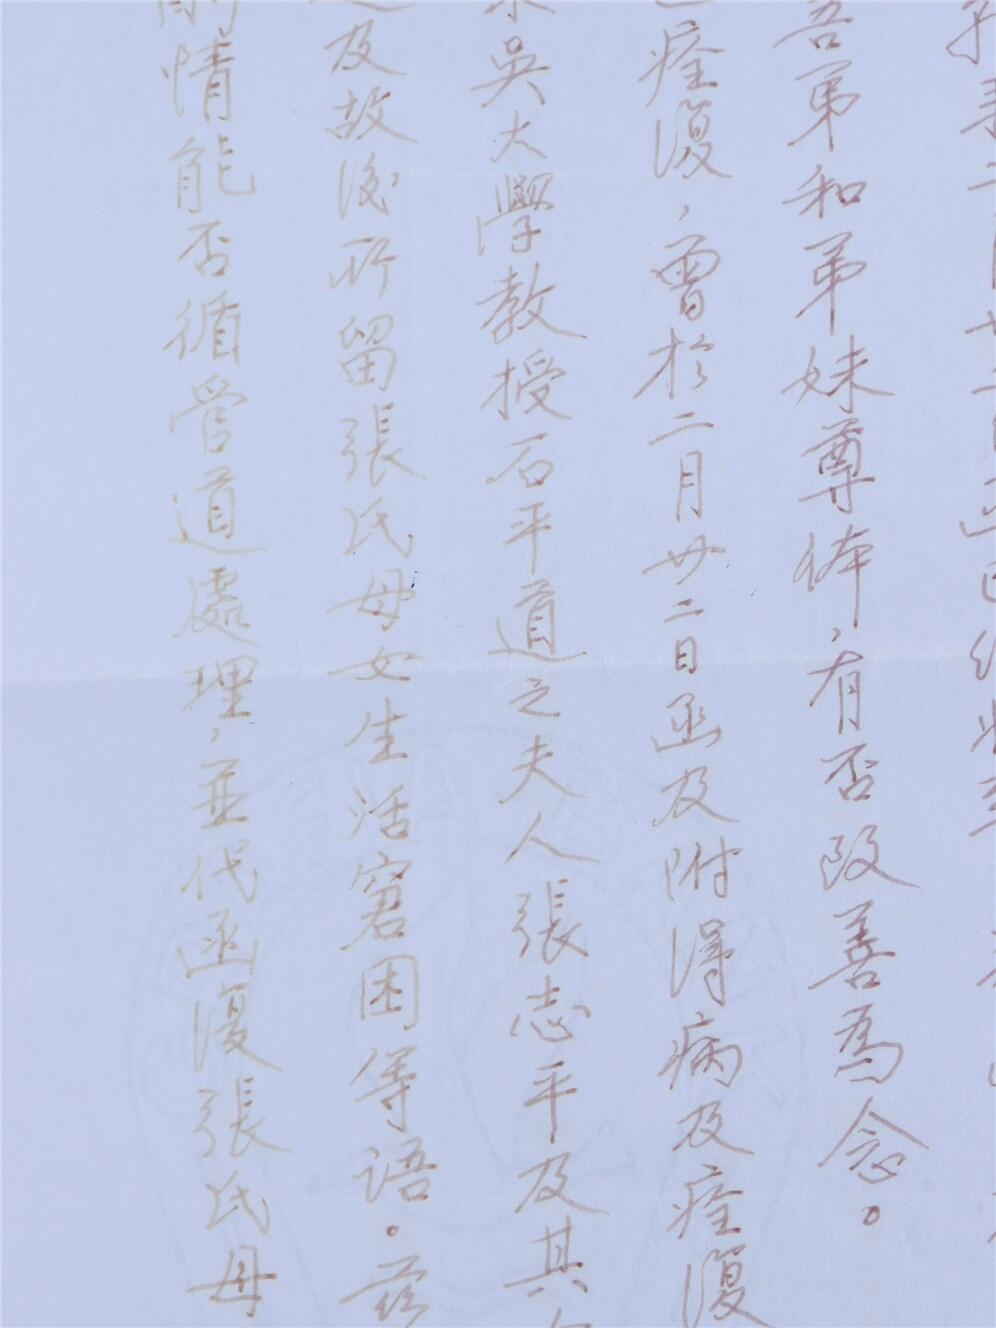 吾弟和弟妹尊体，有否改善為念。
痊復，曾於二月廿二日函及附得病及痊復
吳大學教授石平道之夫人張志平及其
及故後所留張氏母女生活窘困等语。茲
情能否循管道處理，並代函復張氏母